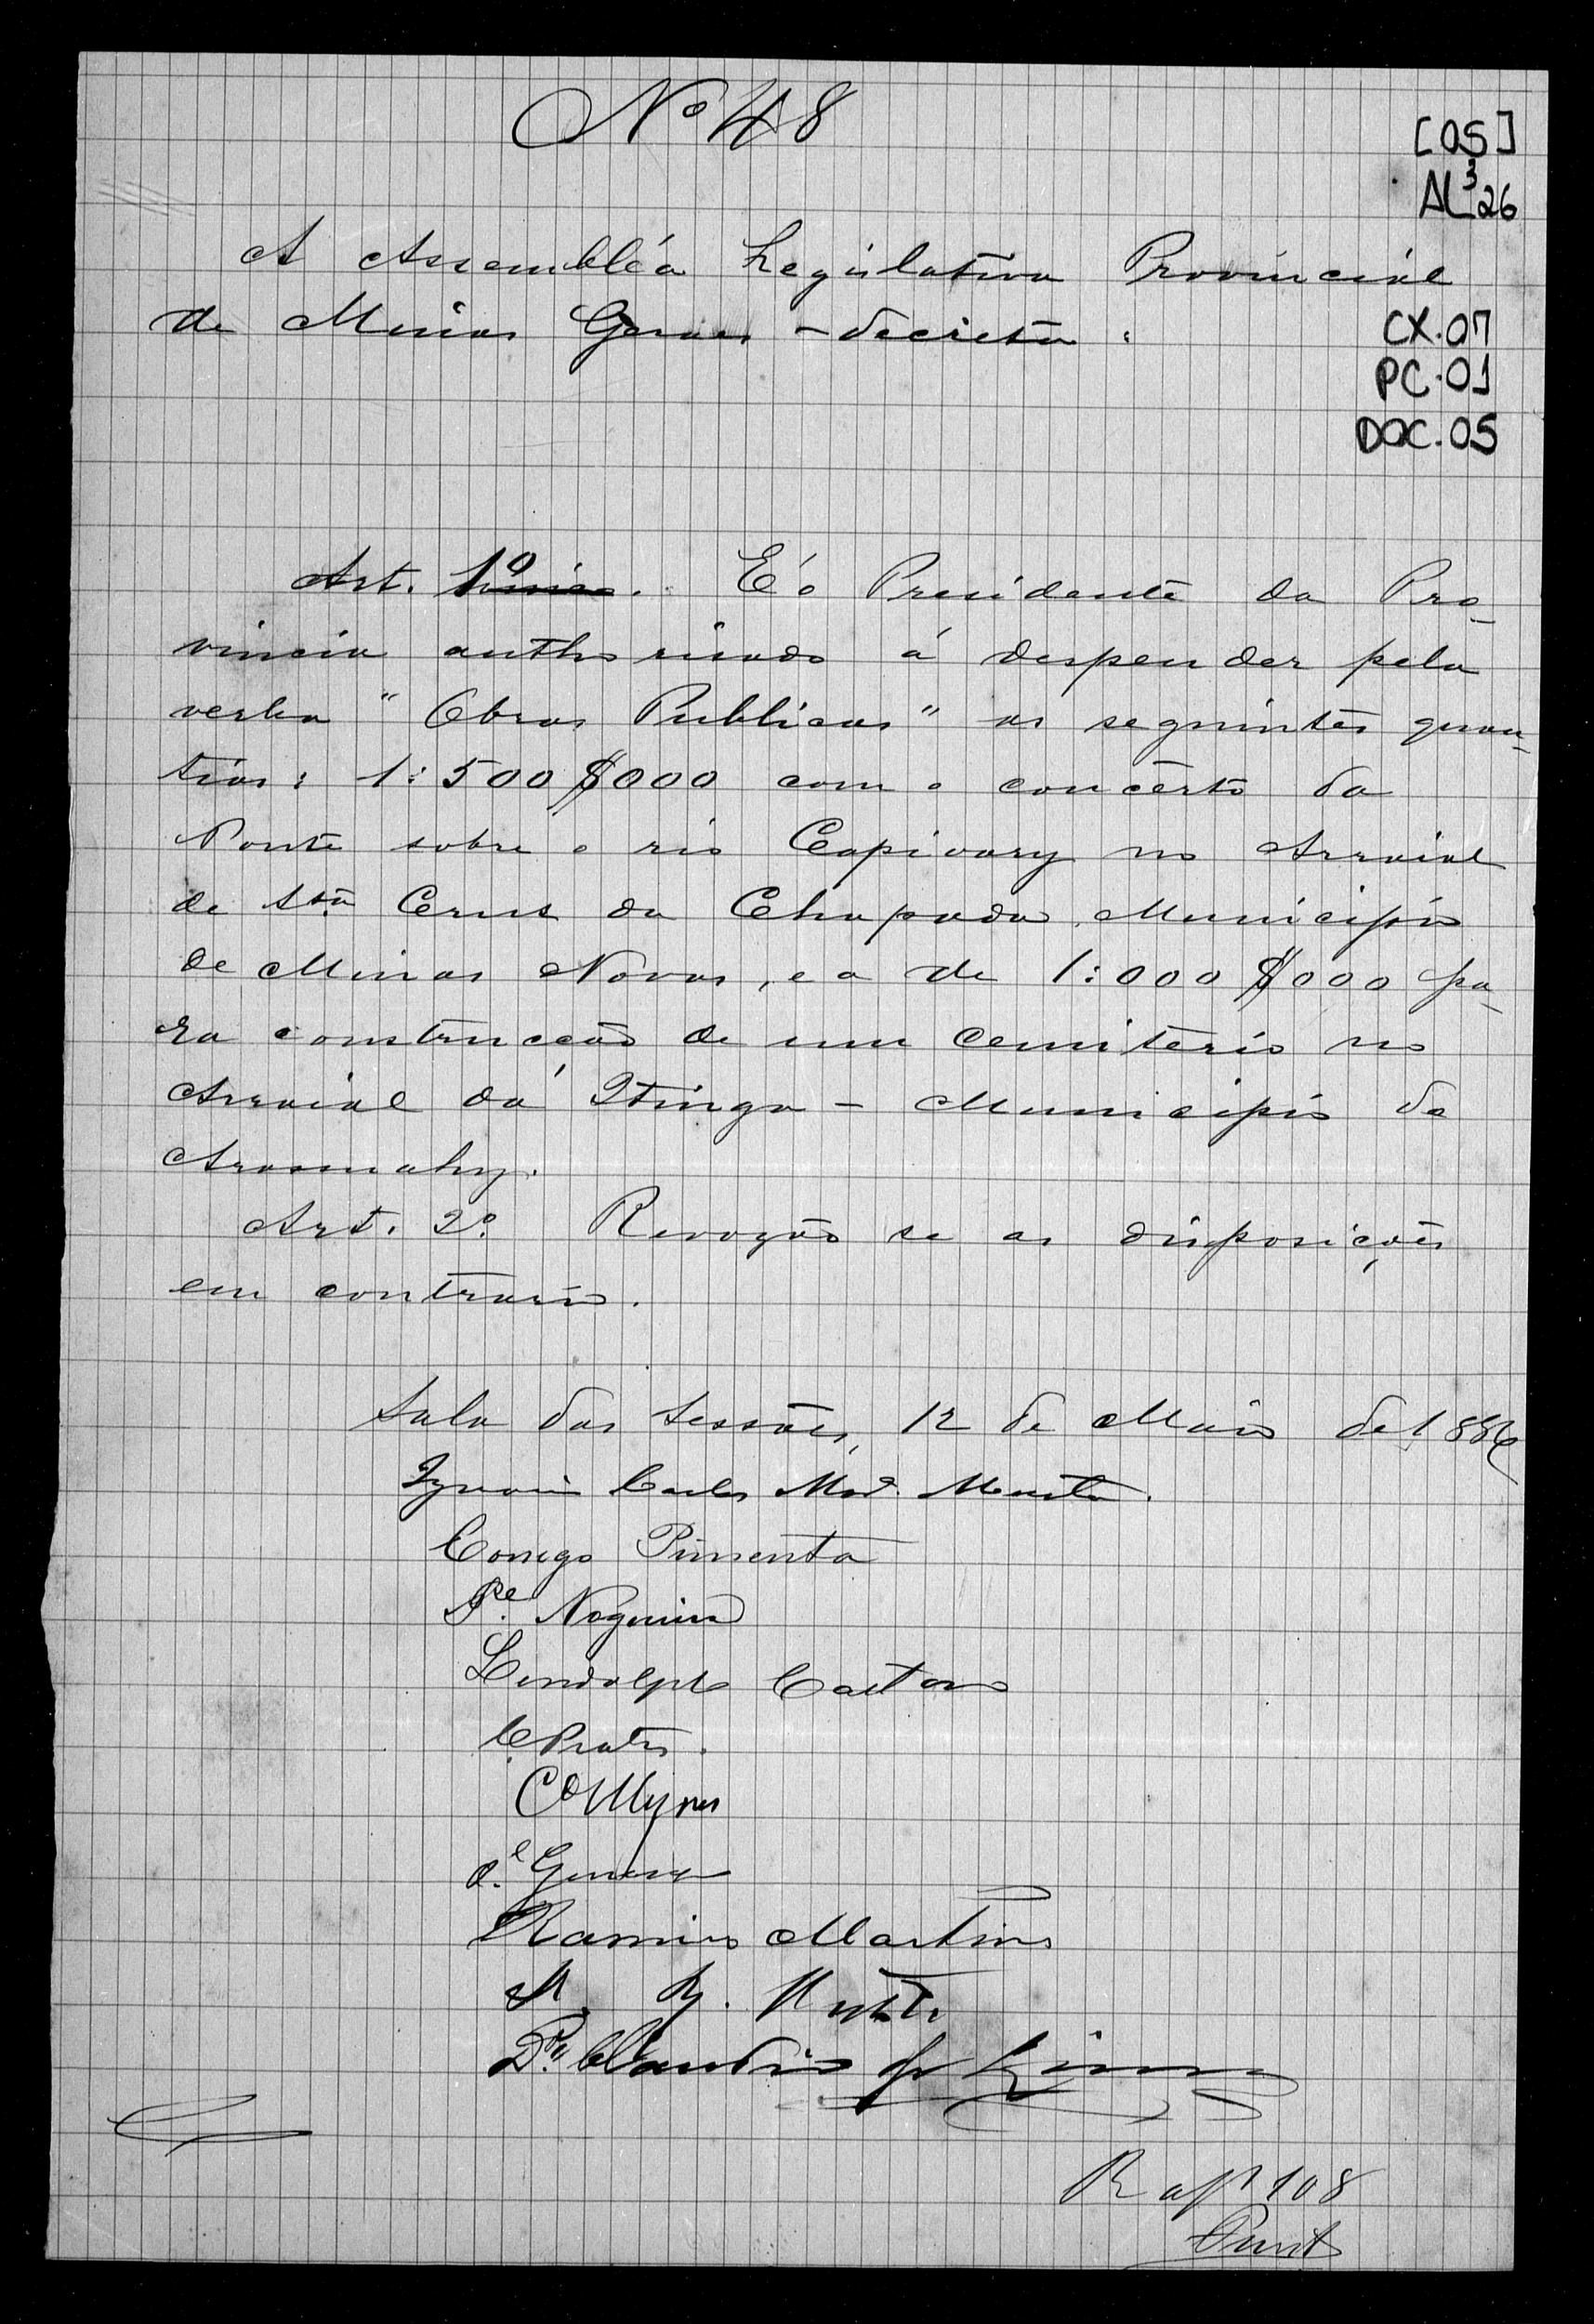 Nº 48
[05]
AL³26
A Assembléa Legislativa Provincial
de Minas Geraes – decreta:
CX.07
PC.01
DOC.05
Art. 1º. É o Presidente da Pro-
vincia authorisado á despender pela
verba "Obras Publicas" as seguintes quan-
tias: 1:500$000 com o concêrto da
Ponte sobre o rio Capivary no Arraial
de Sta Cruz da Chapada, Municipio
de Minas Novas, e a de 1:000$000 pa-
ra construcção de um Cemiterio no
Arraial da Itinga – Municipio do
Arassuahy.
Art. 2º. Revogão se as disposições
em contrario.
Sala das Sessões, 12 de Maio de 1886
Ignacio Carlos Murta.
Conego Pimenta
Pe. Nogueira
Lindolpho Caetano
C. Prates.
Ramiro Martins
Claudio de Lima
R a fl 108